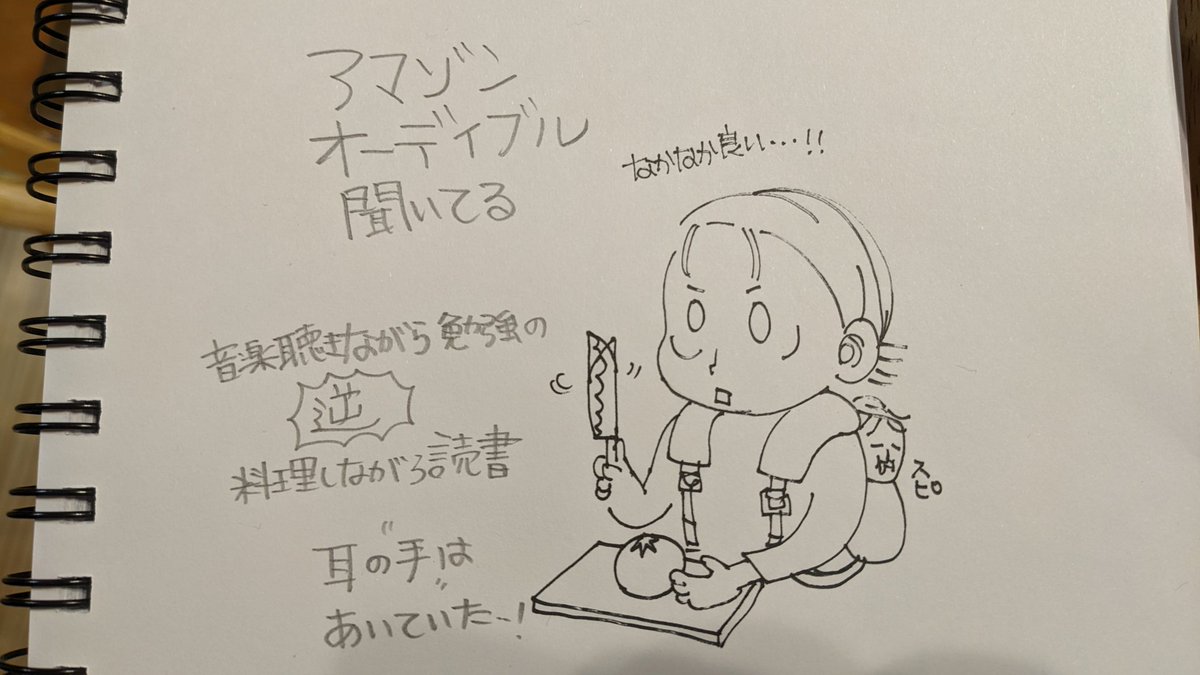 アマゾン
オーディブル
聞いてる
なかなか良い…!!
音楽聴きながら勉強の
逆
料理しながら読書
耳の"手"は
あいていたー!
スピ